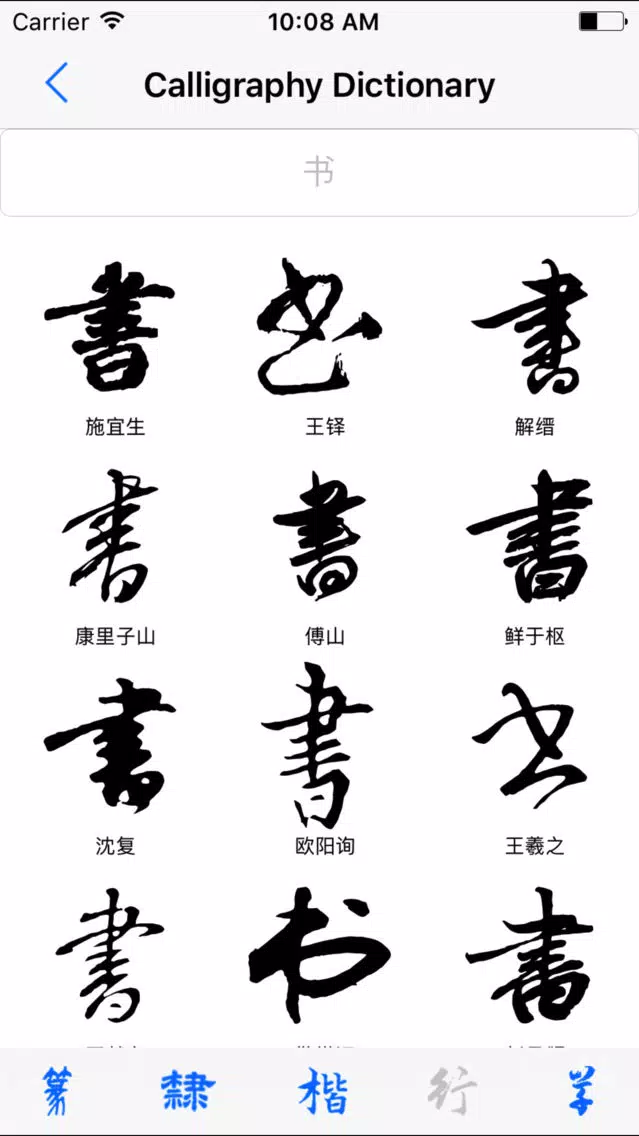 Carrier 10:08 AM
Calligraphy Dictionary
书
書 书 書
施宜生 王铎 解缙
書 書 書
康里子山 傅山 鲜于枢
書 書 书
沈复 欧阳询 王羲之
書 书 書
篆 隸 楷 行 草